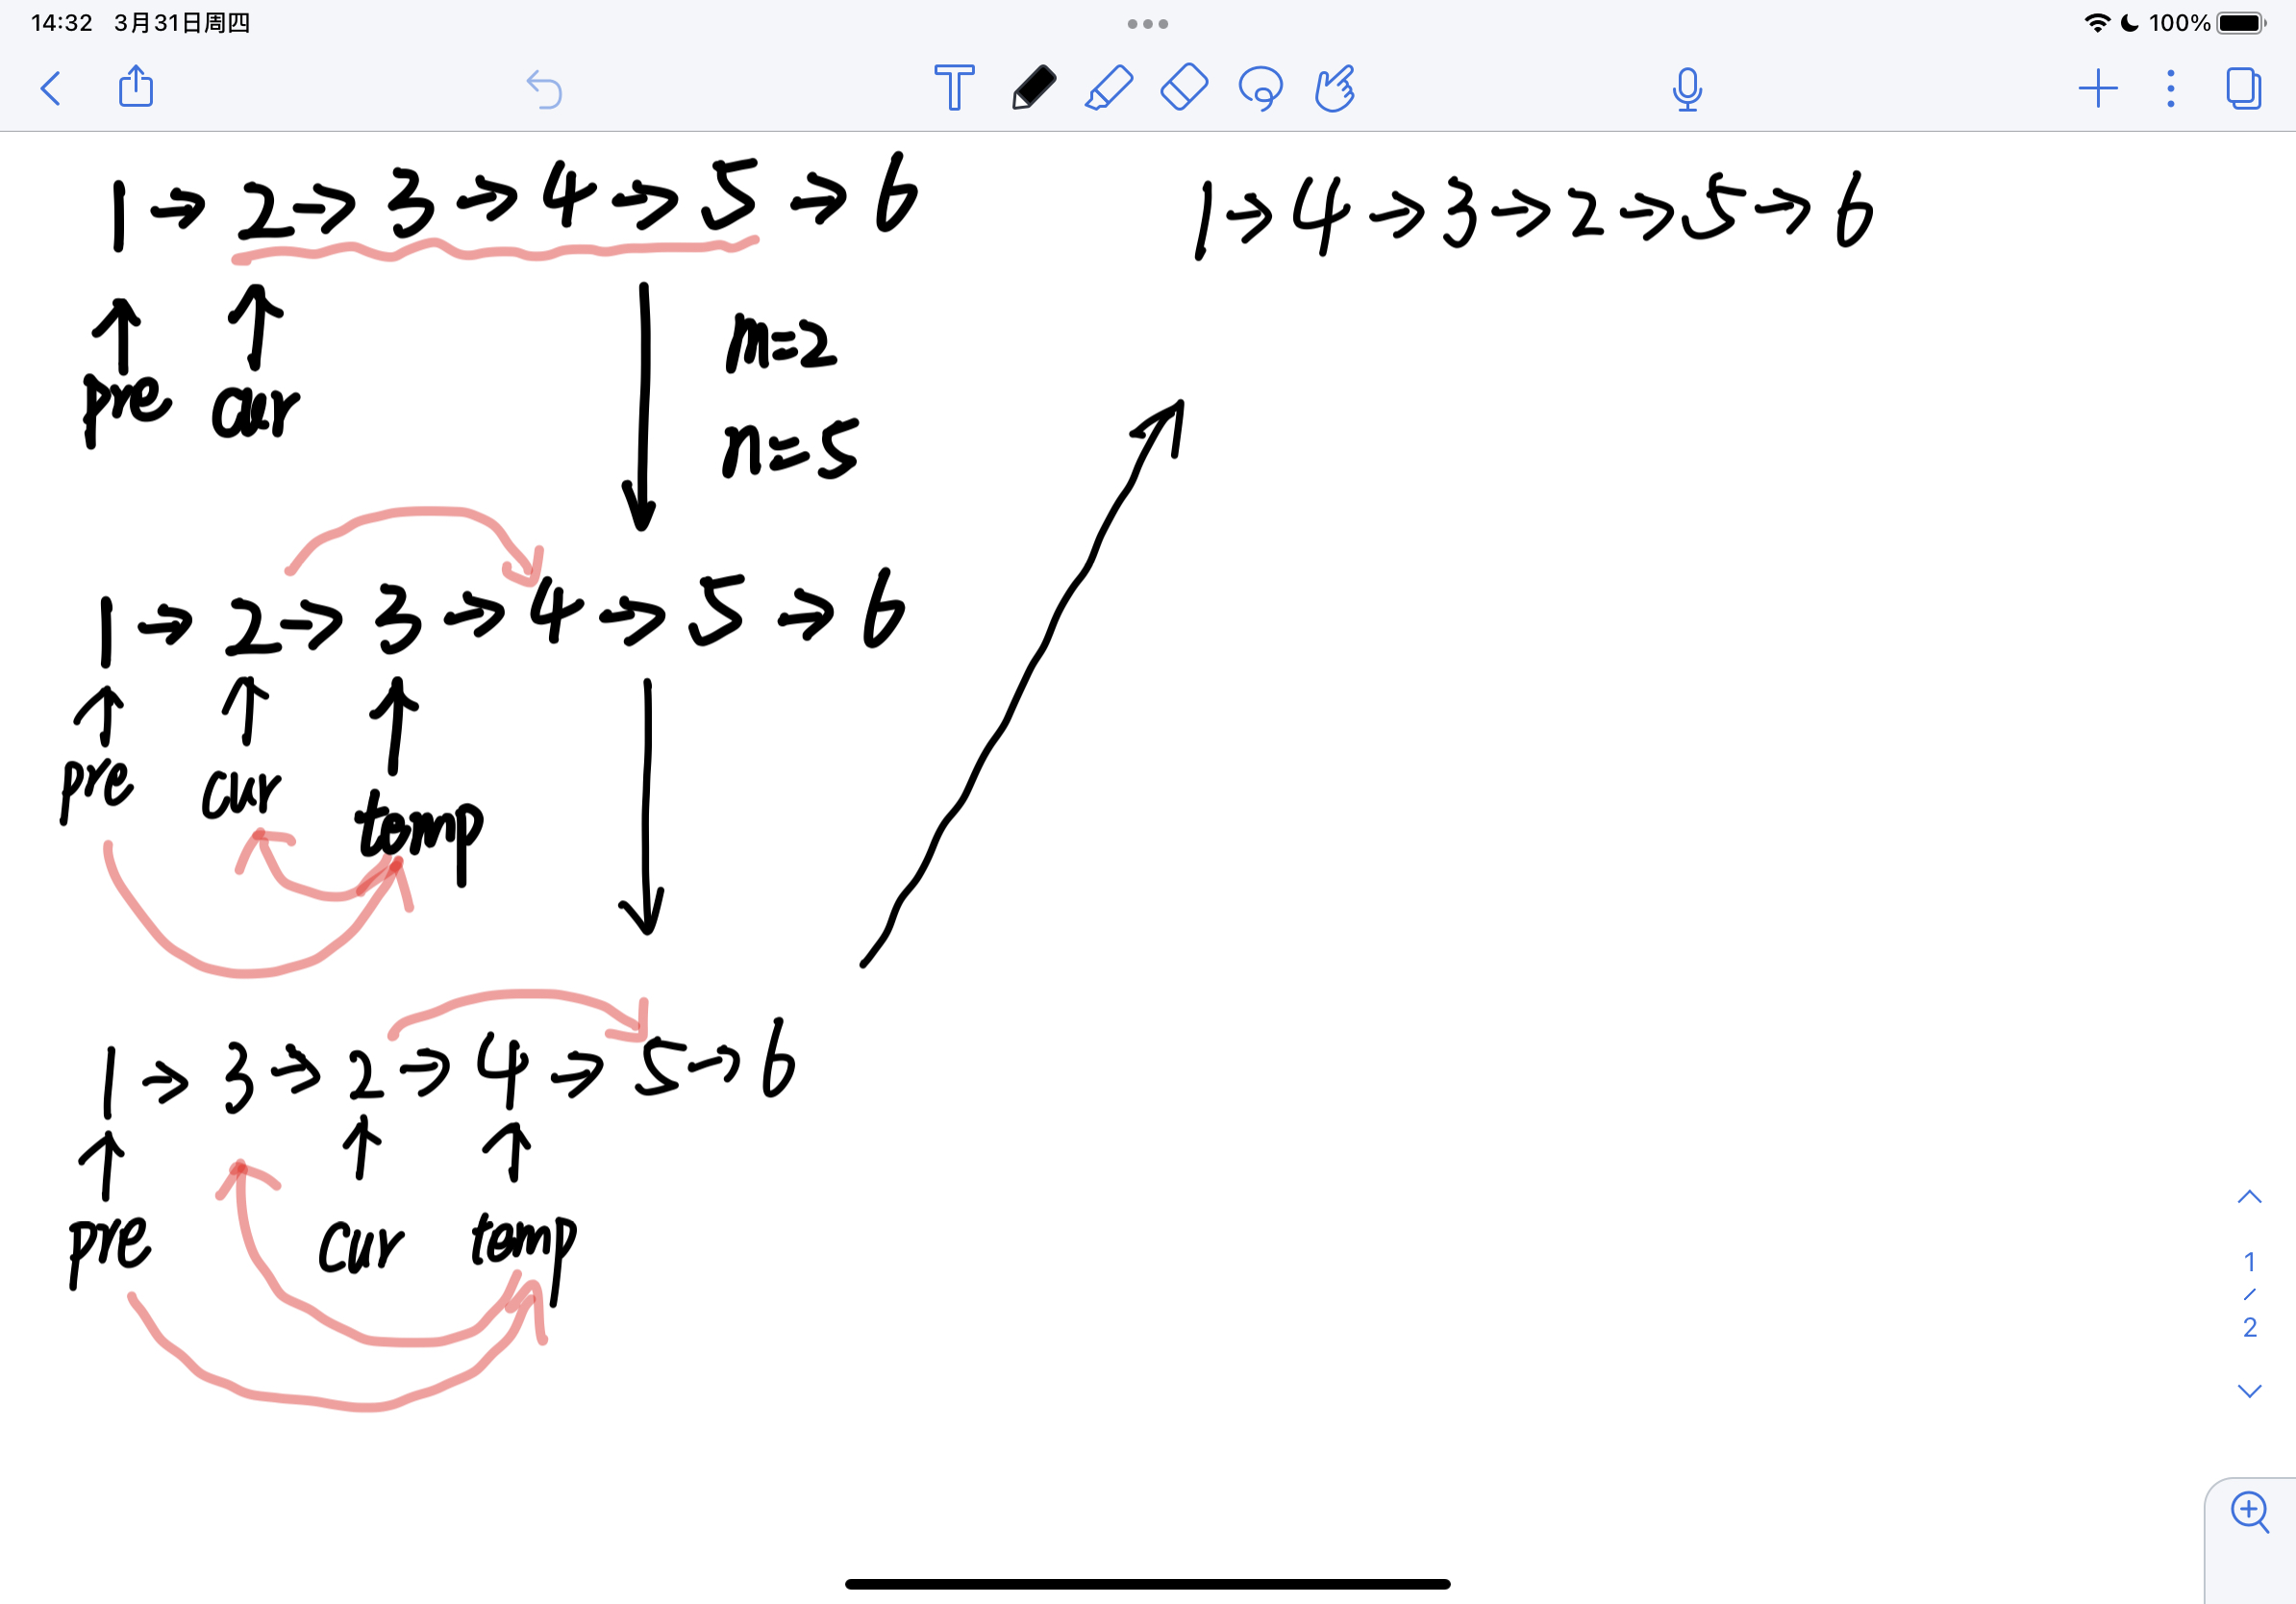 14:32 3月31日周四
100%
1→2→3→4→5→6
pre cur
m=2
n=5
1→2→3→4→5→6
pre cur temp
1→3→2→4→5→6
pre cur temp
1→4→3→2→5→6
T
1
/
2